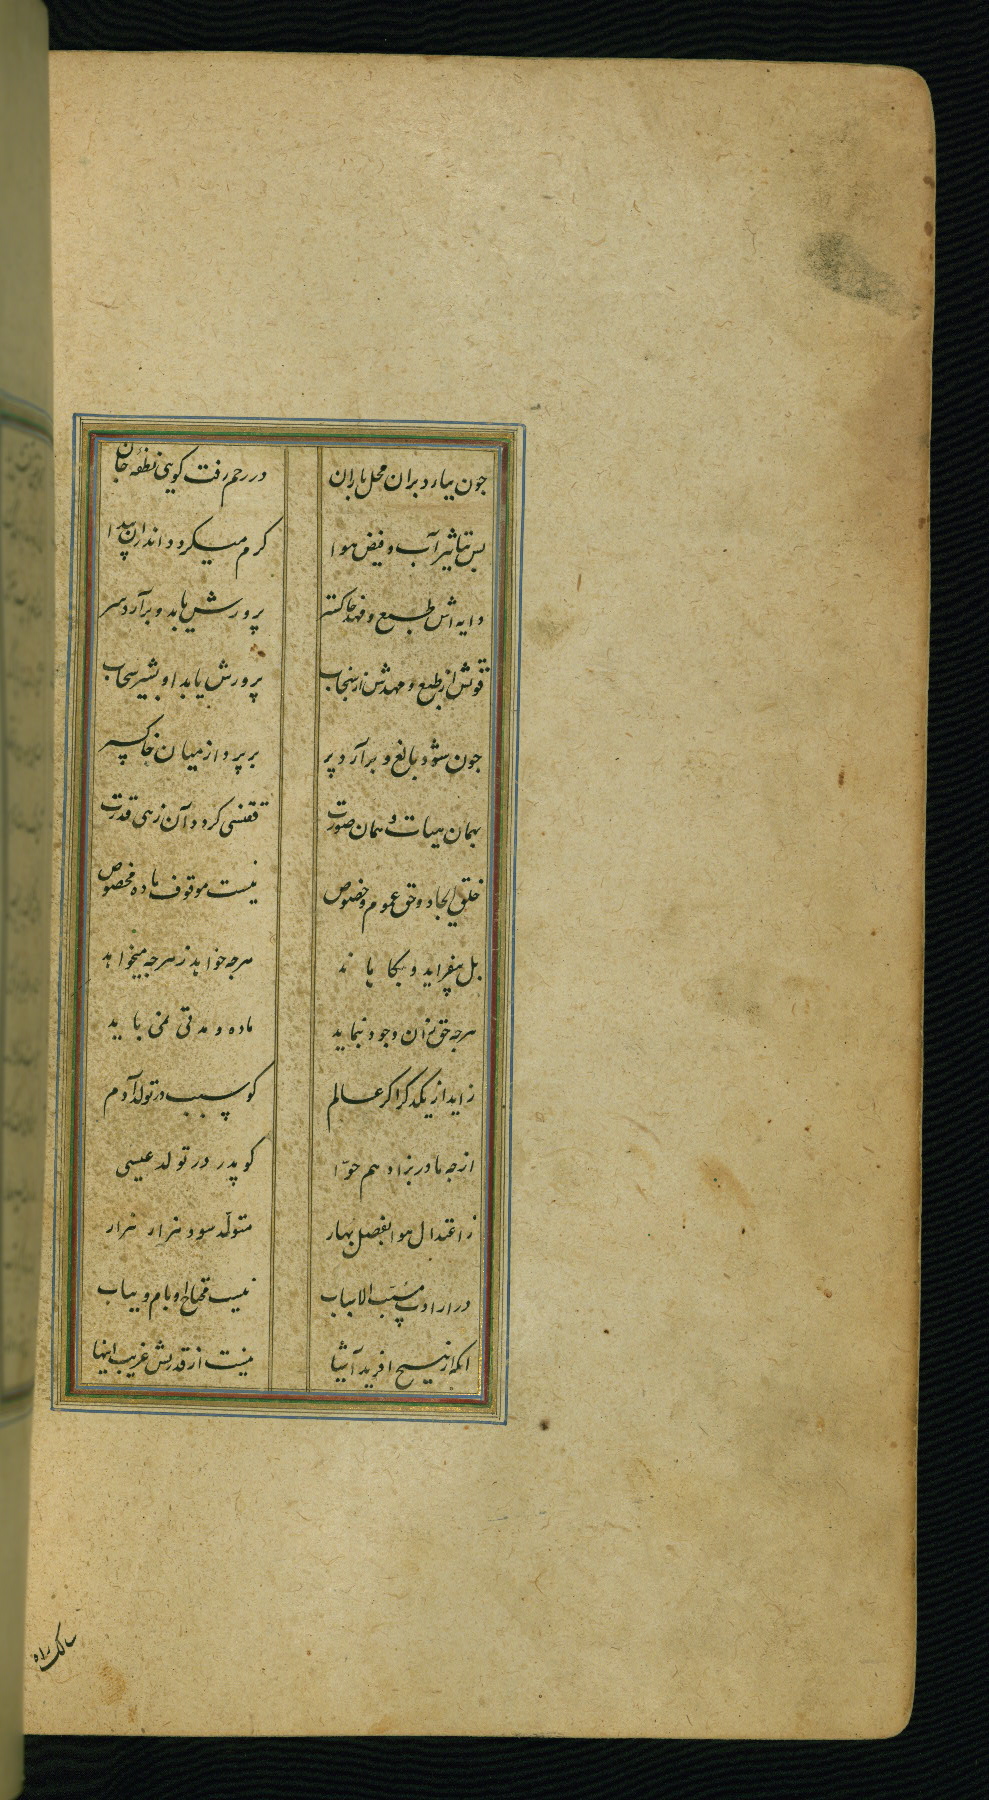 جون ببارد بران محل باران در رحم رفت کویی نطفه جان
بس بتاثیر آب و فیض هوا کرم میکردد اندران پیدا
دایه اش طبع و مهد خاکستر پرورش یابد و برآرد سر
قوتش از طبع و مهدش از سنجاب پرورش یابد او بشیر سحاب
جون شود بالغ و برآرد پر بر پرد از میان خاکستر
بهمان هیات و همان صورت ققنسی کردد آن زهی قدرت
خلق ایجاد و حق عموم و خصوص نیست موقوف ماده مخصوص
بل بیفزاید و بکاهاند هرجه خواهد ز هرجه میخواهد
هرجه حق زان وجود بنماید ماده و مدتی نمی باید
زاید از یکدکر اکر عالم کو سبب در تولد آدم
ازجه مادر بزاد هم حوّا کو پدر در تولد عیسی
ز اعتدال هوا بفصل بهار متولّد سود هزار هزار
در ارادت مسبّب الاسباب نیست محتاج او بام و بباب
انکه از هیج آفرید اشیا نیست از قدرتش غریب اینها
سالک راه